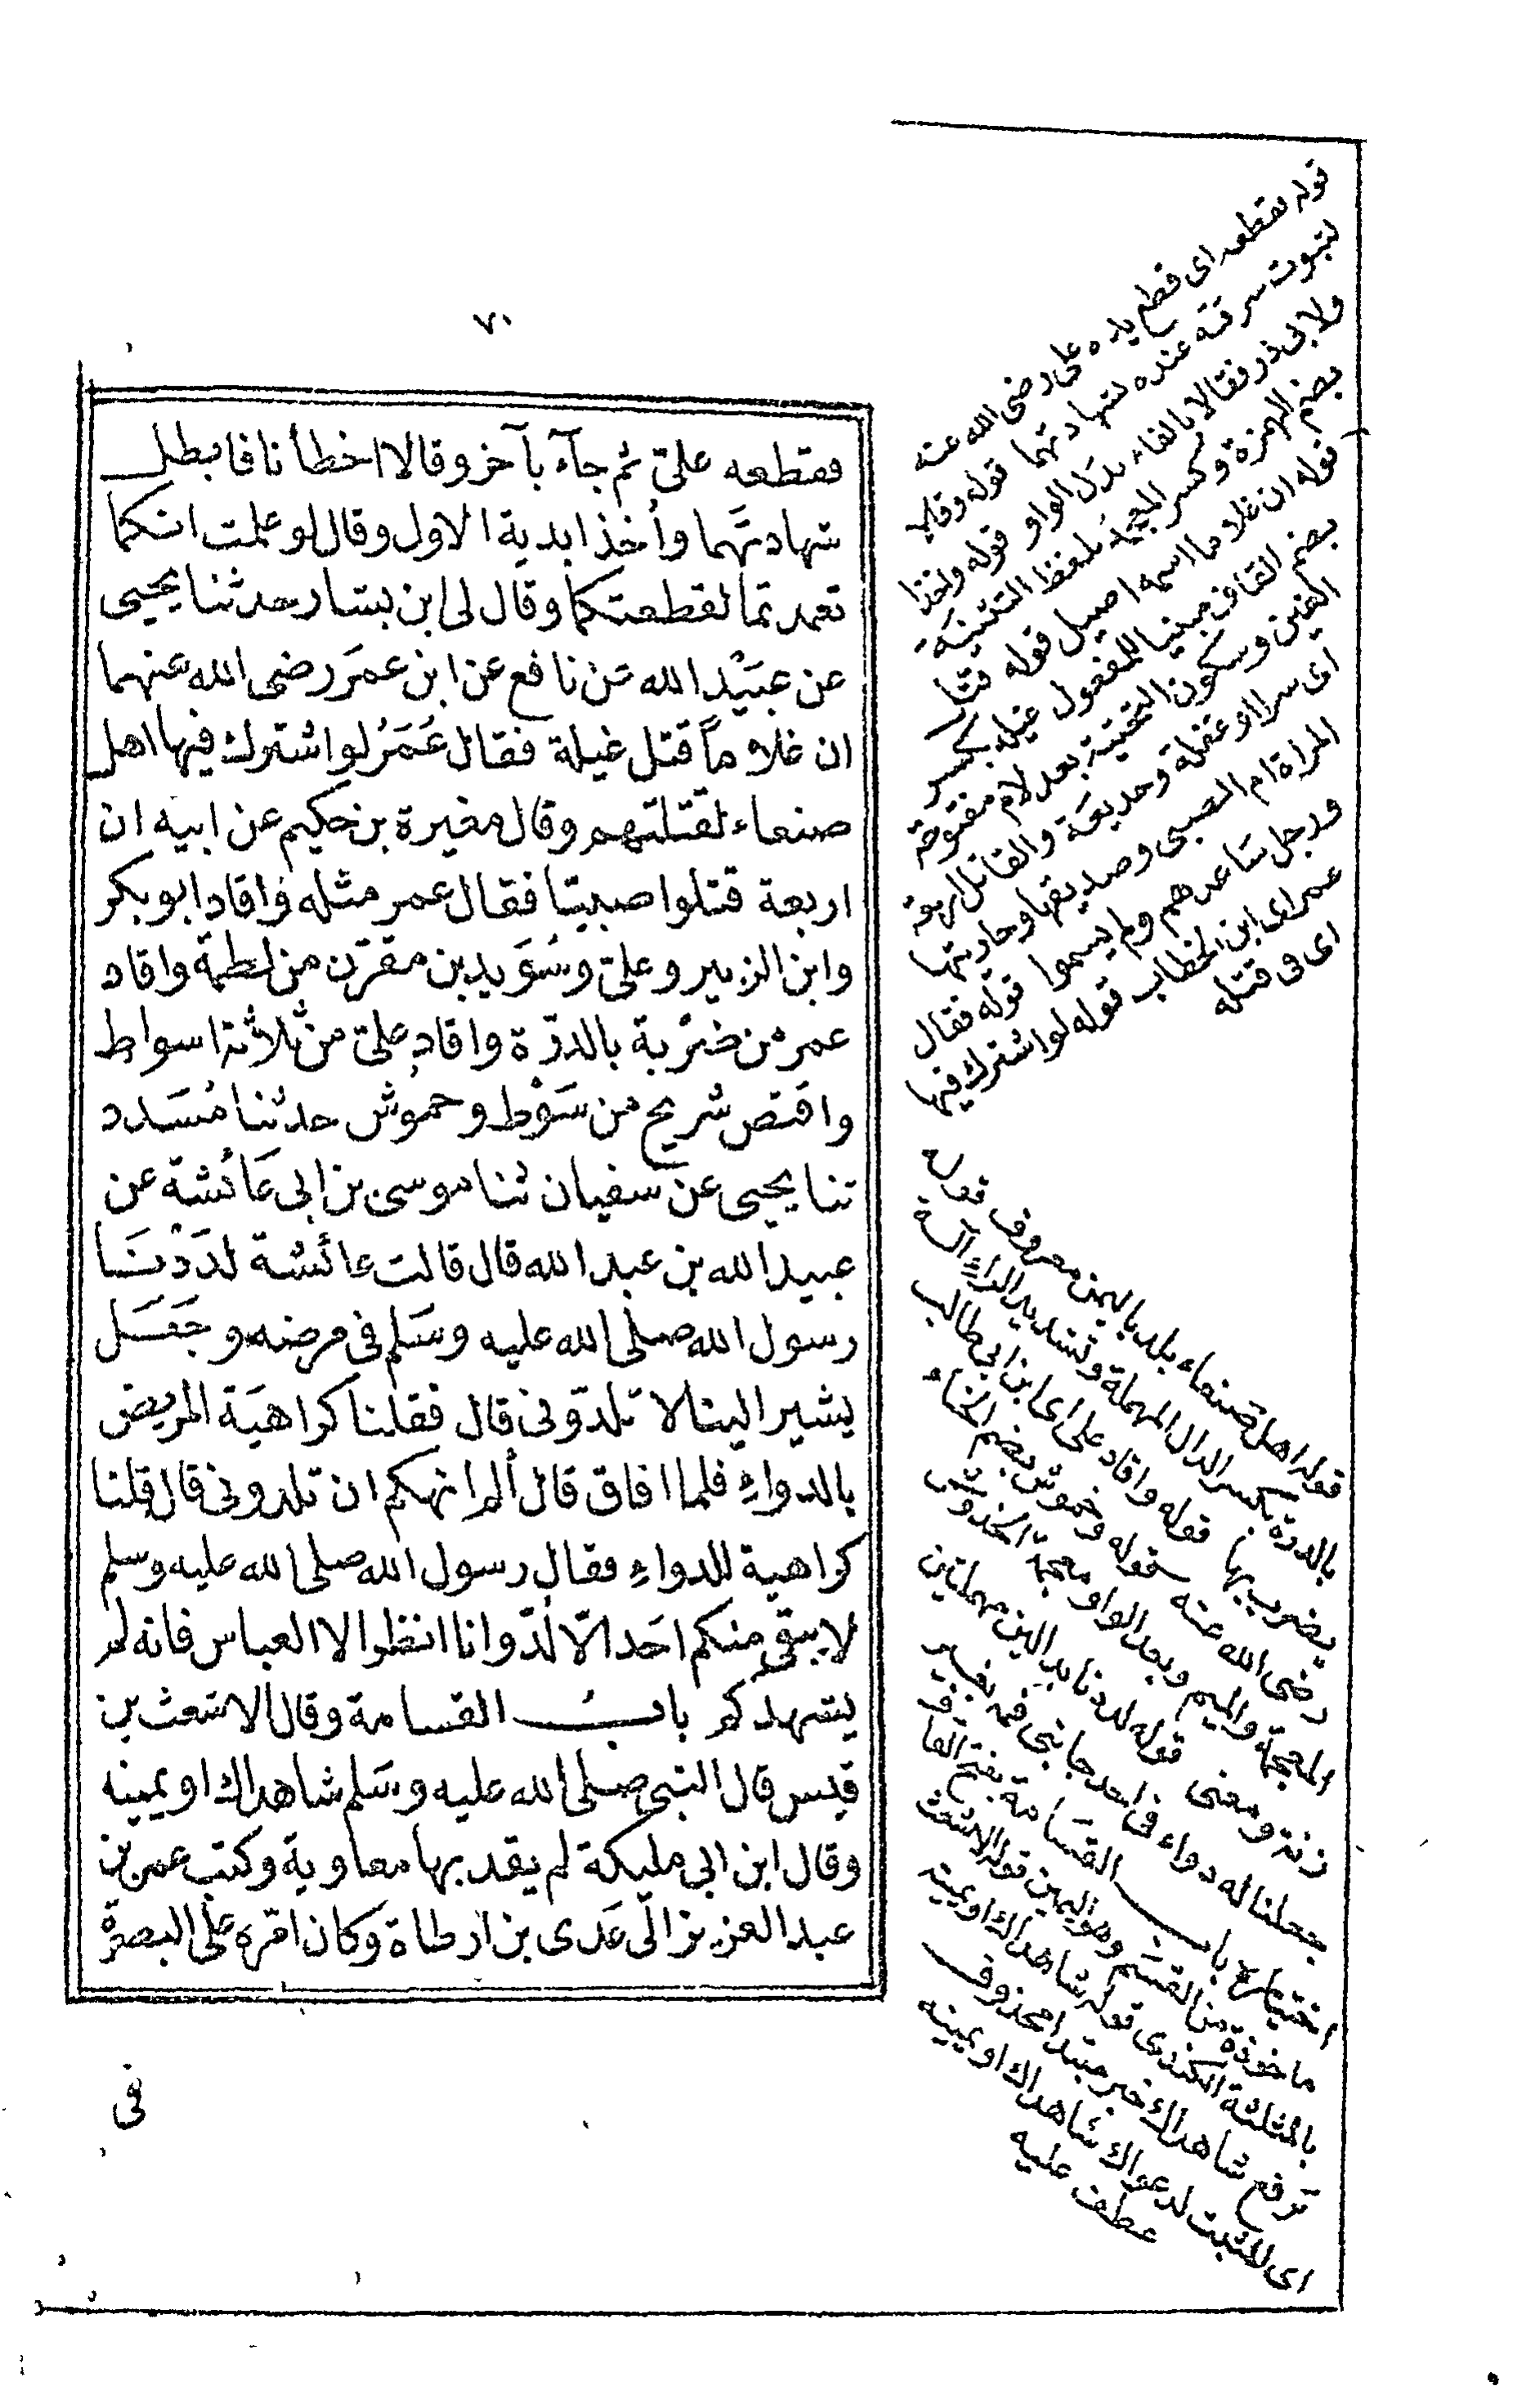 ٧٠
فقطعه علىّ ثم جآء بآخر وقالا اخطأنا فابطل
شهادتهما وأُخذا بدية الاول وقال لو علمت انكما
تعمدتما لقطعتكما وقال لى ابن بشار حدثنا يحيى
عن عبَيْد الله عن نافع عن ابن عمَر رضى الله عنهما
ان غلاماً قتل غيلة فقال عُمَرُ لو اشترك فيها اهل
صنعاء لقتلتهم وقال مغيرة بن حكيم عن ابيه ان
اربعة قتلوا صبيّا فقال عمر مثله واقاد ابو بكر
وابن الزبير وعلىّ وسُوَيد بن مقرّن من لطمة واقاد
عمر من ضرْبة بالدرّة واقاد علىّ من ثلاثة اسواط
واقتص شريح من سَوْط وخموُش حدثنا مُسَدد
ثنا يحيى عن سفيان ثنا موسى بن ابى عَائشة عن
عبيد الله بن عبد الله قال قالت عائشة لدَدْنَا
رسول الله صلى الله عليه وسَلم فى مرضه وجَعَل
يشير الينا لا تلدّونى قال فقلنا كراهيَة المريض
بالدواءِ فلما افاق قال ألم انهكم ان تلدونى قال قلنا
كراهية للدواءِ فقال رسول الله صلى الله عليه وسلم
لا يبقى منكم احَد الّا لُدّ وانا انظر الا العباس فانه لم
يشهدكم بابُ القسامة وقال الاشعث بن
قيس قال النبى صلى الله عليه وسَلم شاهداك او يمينه
وقال ابن ابى مليكة لم يقد بها معاوية وكتب عمر بن
عبد العزيز الى عَدى بن ارطاة وكان امّره على البصرة
فى
قوله فقطعه اى فقطع يده على رضى الله عنه
لثبوت سرقته عنده بشهادتهما قوله وقالا
ولابى ذر فقالا بالفاء بدل الواو قوله واخذا
بضم الهمزة وكسر المعجمة بلفظ التثنية
قوله ان غلاما اسمه اصيل قوله قتل
بضم القاف مبنيا للمفعول غيلة بكسر
الغين وسكون التحتية بعد لام مفتوحة
اى سرا او غفلة وخديعة والقاتل اربعة
المراة ام الصبى وصديقها وجاريتها
ورجل ساعدهم ولم يسموا قوله فقال
عمر اى ابن الخطاب قوله لو اشترك فيها
اى فى قتله
قوله اهل صنعاء بلد باليمن معروف قوله
بالدرة بكسر الدال المهملة وتشديد الراءِ آلة
يضرب بها قوله واقاد على اى ابن ابى طالب
رضى الله عنه قوله وخموش بضم الخاء
المعجمة والميم وبعد الواو معجمة الخدوش
زنة ومعنى قوله لددنا بدالين مهملتين
جعلنا له دواء فى احد جانبى فمه بغير
اختياره باب القسَامة بفتح القاف
ماخوذة من القسَم وهو اليمين قوله الاشعث
بالمثلثة الكندى قوله شاهداك او يمينه
ترفع شاهداك خبر مبتدا محذوف
اى المثبت لدعواك شاهداك او يمينه
عطف عليه